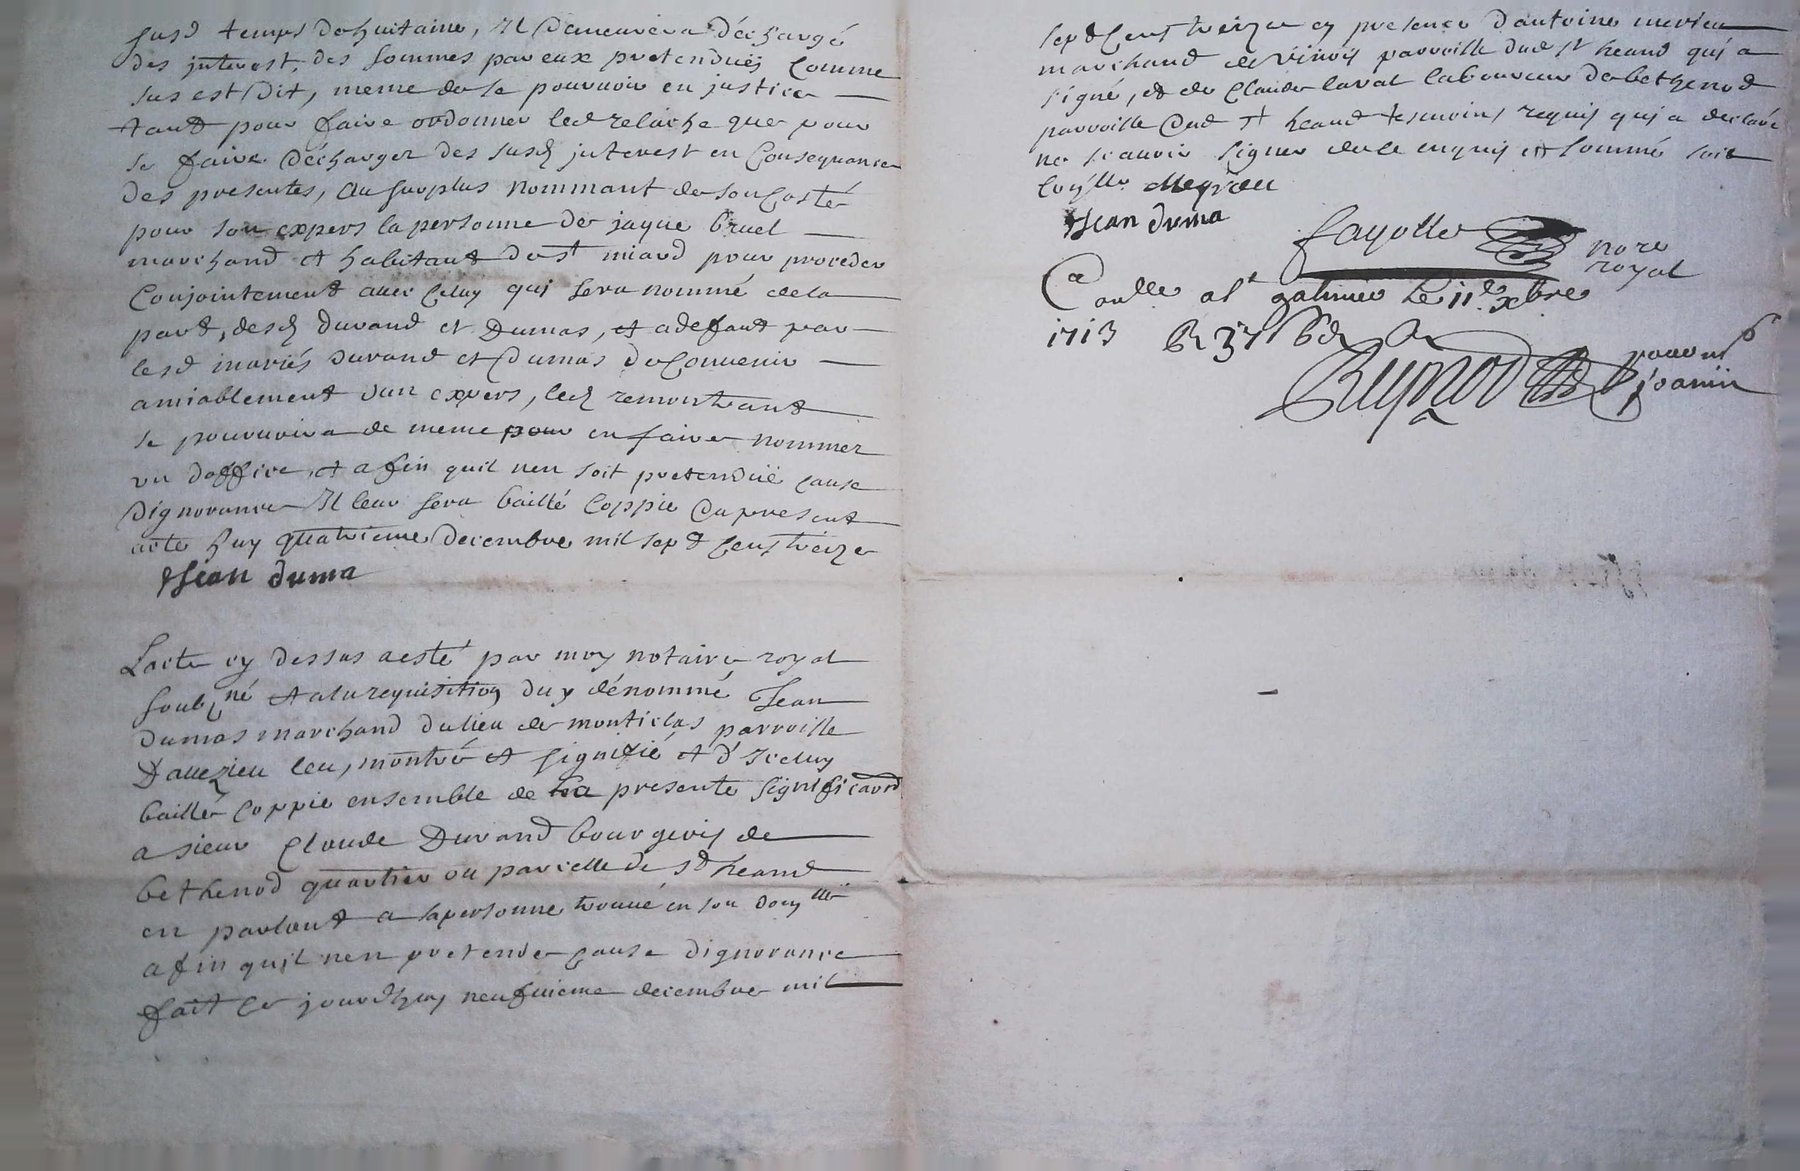 susd temps de huitaine, Il demeurera déchargé
des interest, des sommes par eux pretendües comme
sus est dit, meme de se pourvoir en justice
tant pour faire ordonner led relache que pour
se faire décharger des susd interest en Consequance
des presentes, au surplus nommant de son Costé
pour son expers la personne de jaque bruel
marchand et habitant de st miard pour proceder
Conjointement avec Celuy qui sera nommé de la
part, desd durand et Dumas, et a defaut par
lesd mariés durand et Dumas de Convenir
amiablement dun expers, led remontrant
se pourvoira de meme pour en faire nommer
un doffice, et afin quil nen soit pretendüe cause
dignorance Il leur sera baillé Coppie du present
acte huy quatrieme decembre mil sept Cens treize
Jean duma
Lacte cy dessus a esté par moy notaire royal
soubzné et a la requisition du y dénommé Jean
Dumas marchand du lieu de montielas parroisse
Daveizieu leu, montré et signifié et d'Iceluy
baillé coppie ensemble de la presente significaon
a sieur Claude Durand bourgeois de
bethenod quartier ou parcelle de st heand
en parlant a sa personne trouvé en son domlle
afin quil nen pretende cause dignorance
fait Ce jourdhuy neufvieme decembre mil
sept Cens treize en presence dantoine merieu
marchand de parroisse dud st heand qui a
signé, et de Claude laval laboureur de bethenod
parroisse dud st heand tesmoins requis qui a declaré
ne scavoir signer de ce enquis et sommé soit
Jean duma
fayolle nore
royal
Caollé a st galmier le 11e xbre
1713
Reynod